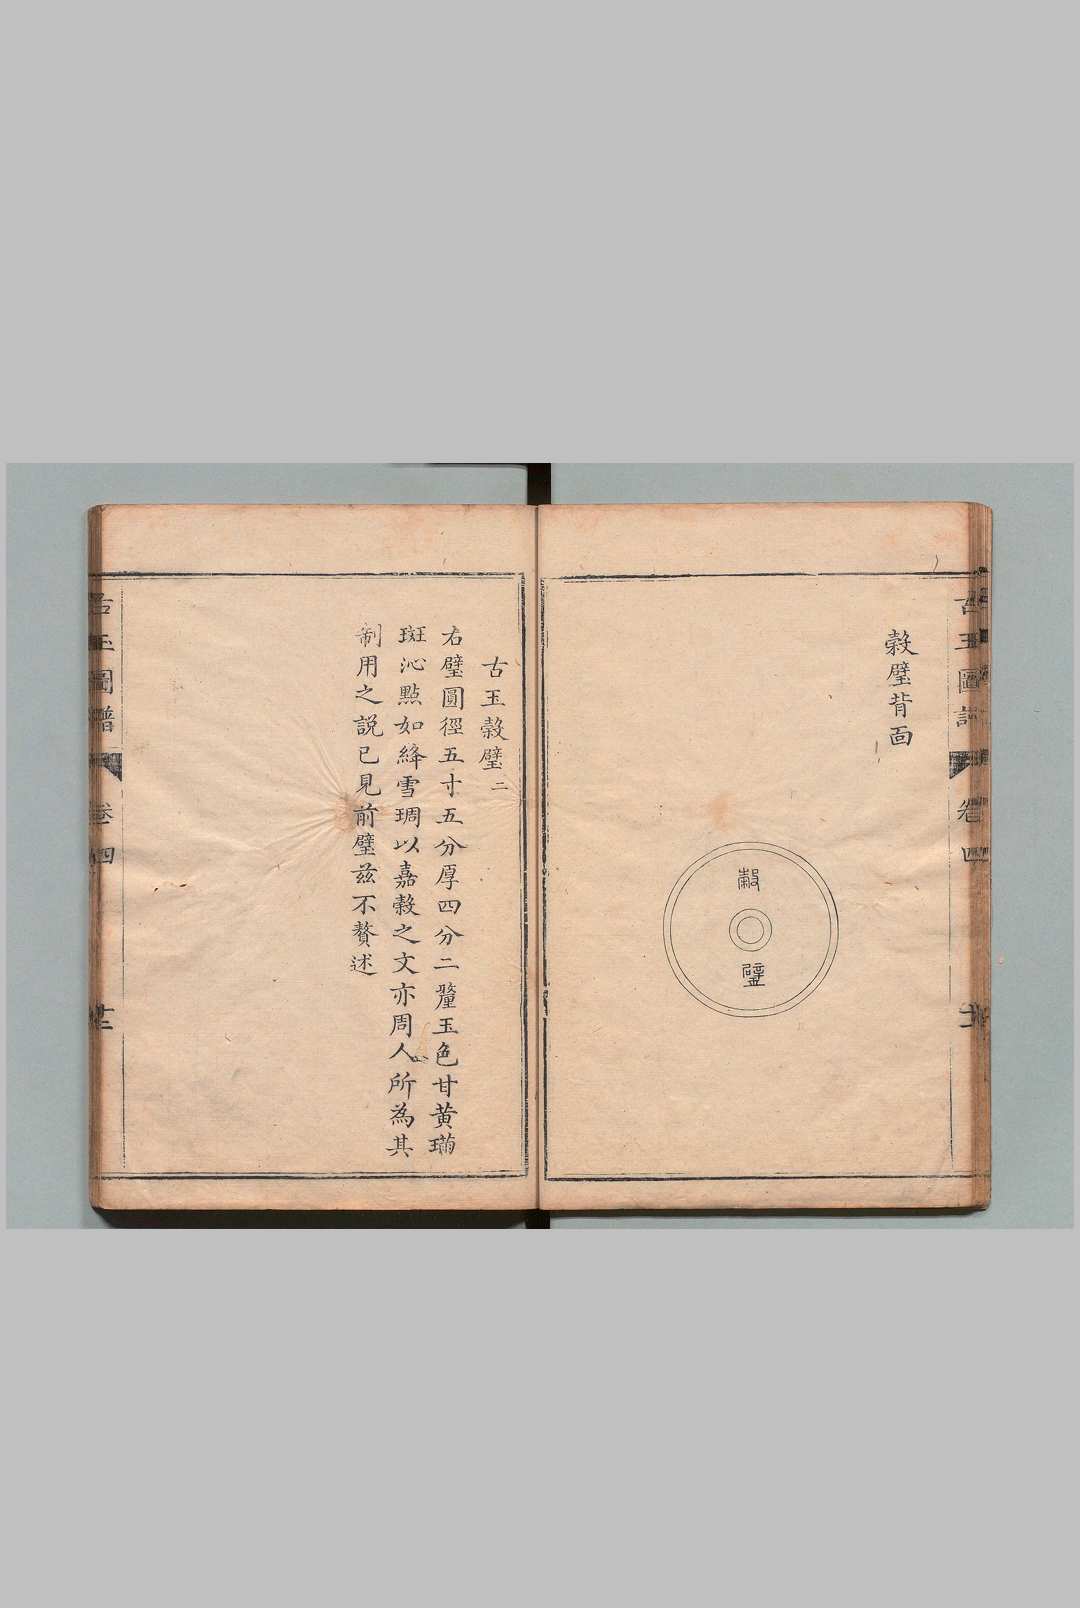 穀璧背面
穀
璧
古玉圖
卷四
古玉穀璧二
右璧圓徑五寸五分厚四分二釐玉色甘黃璊
斑沁點如絳雪琱以嘉穀之文亦周人所為其
制用之說已見前璧茲不贅述
古玉圖譜
卷四